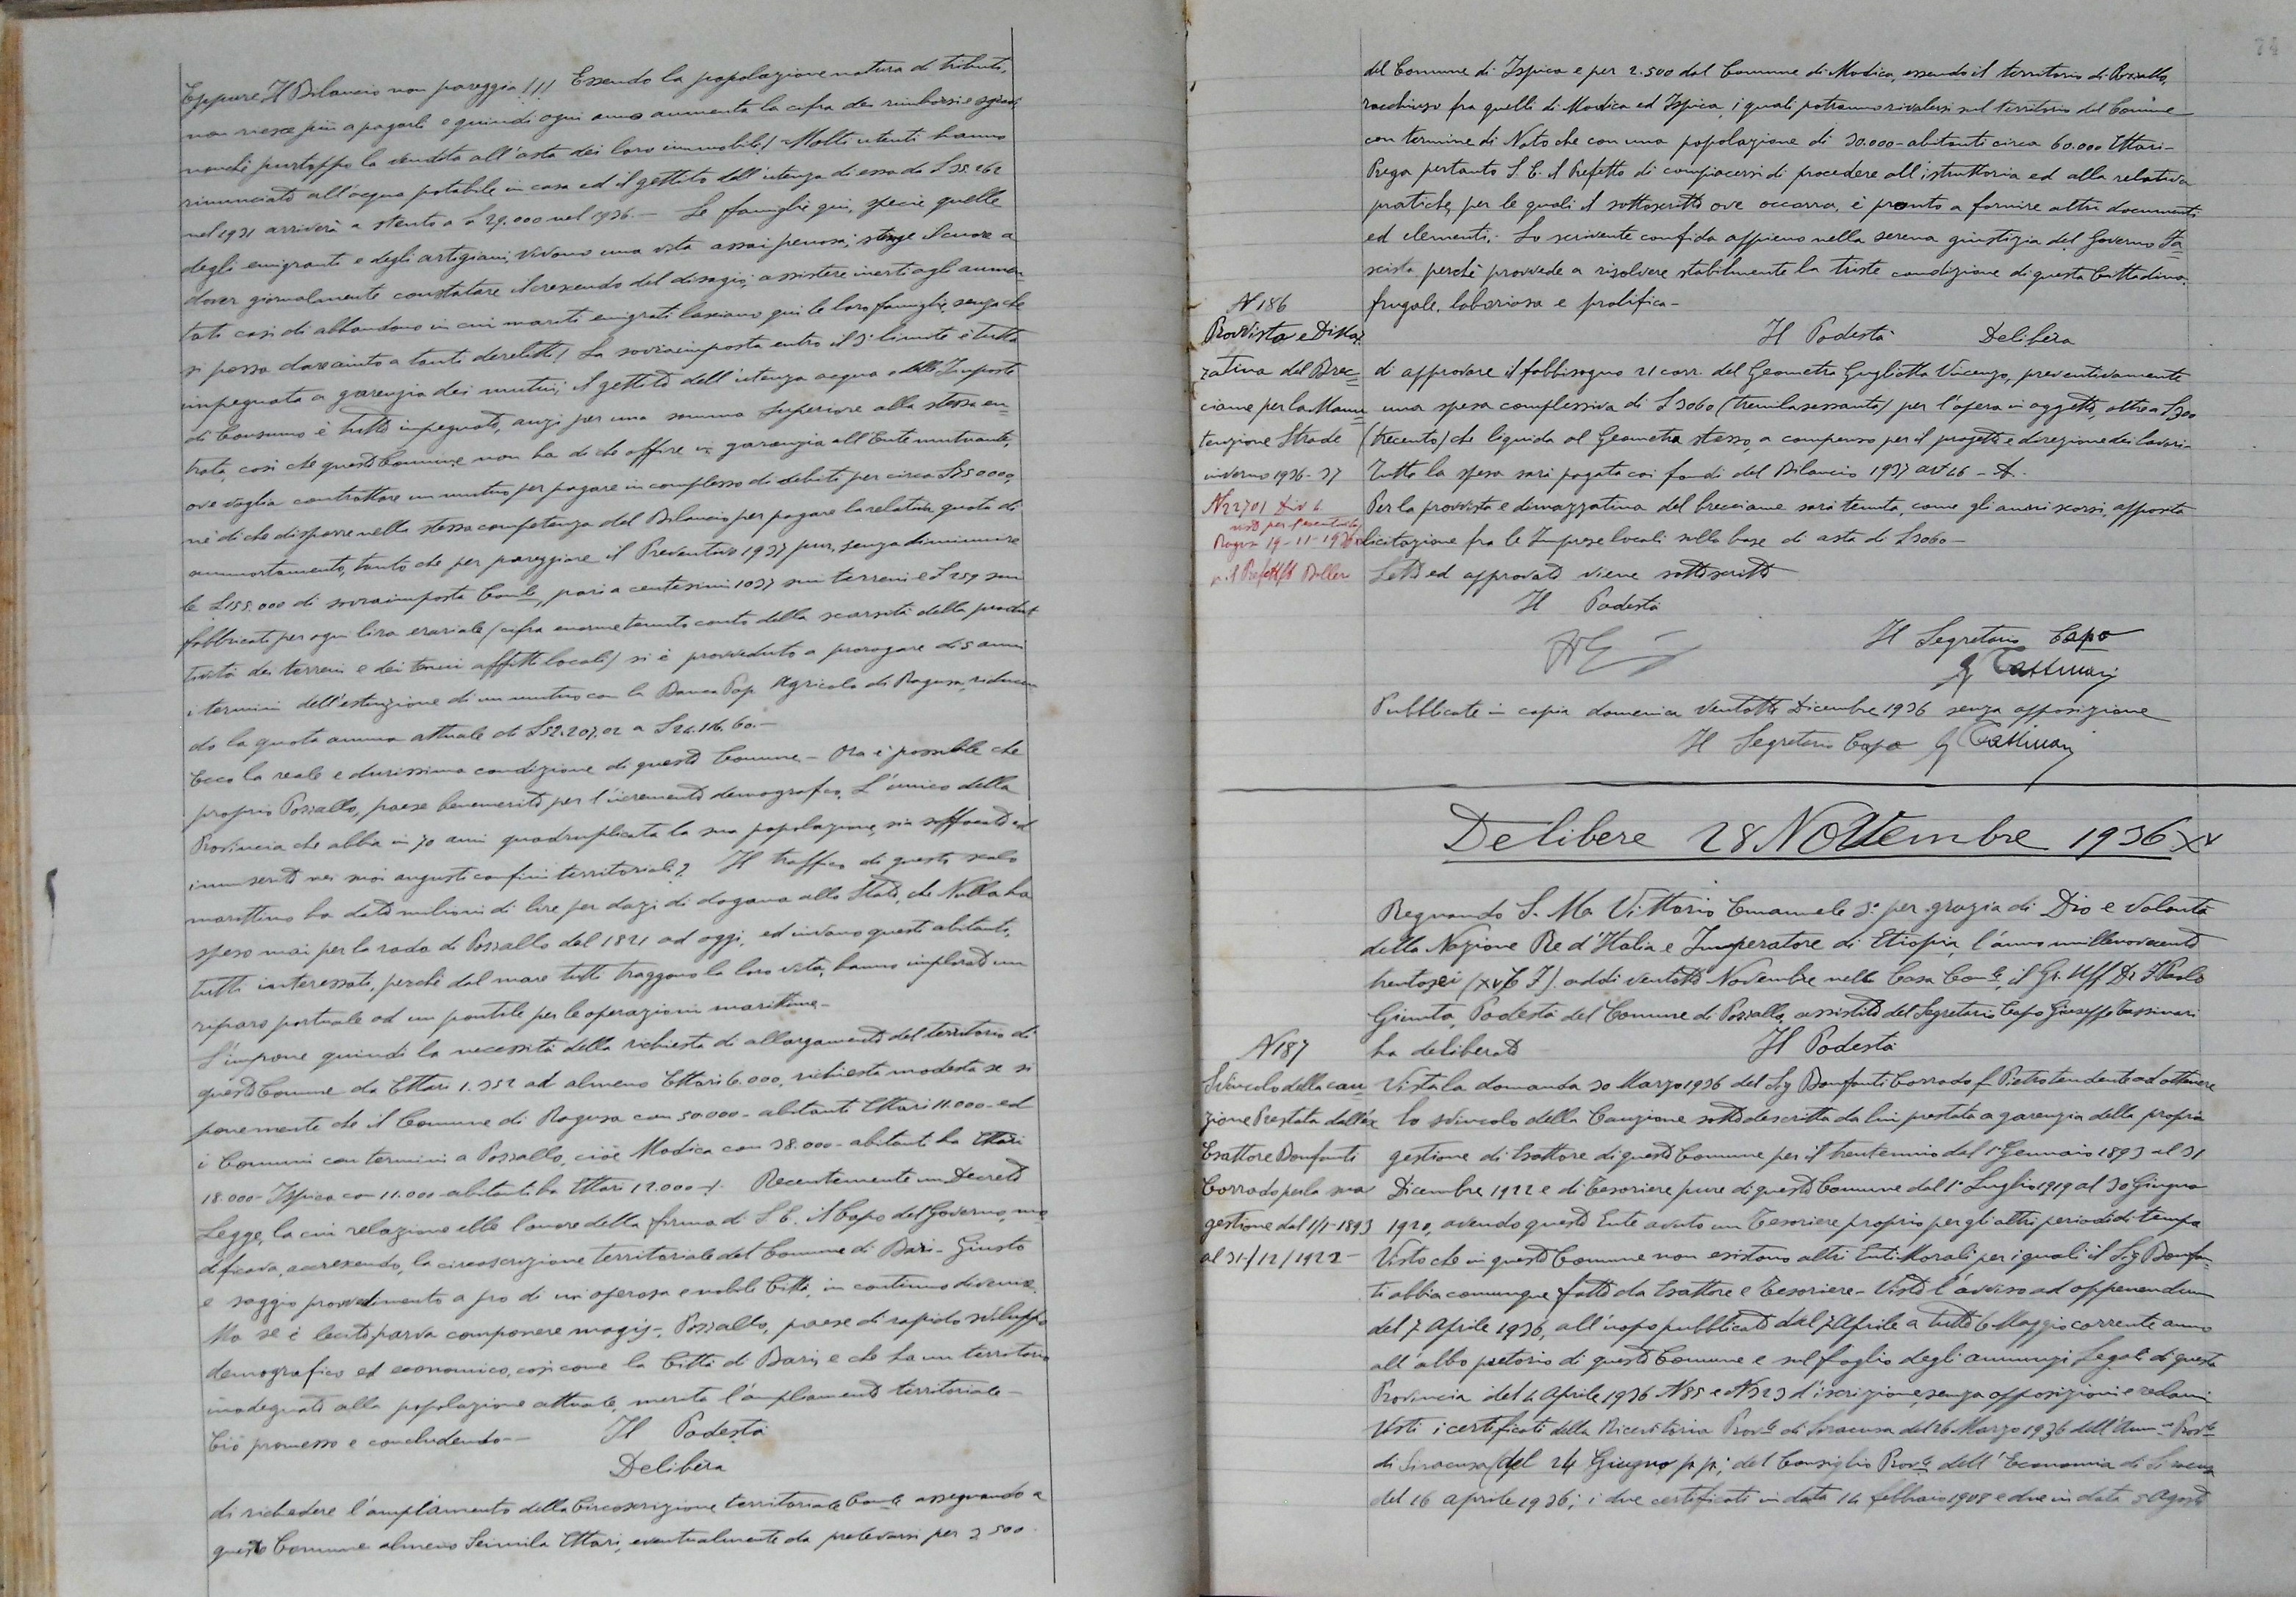 Eppure Il Bilancio non pareggia!!! Essendo la popolazione satura di tributi,
non riesce più a pagarli e quindi ogni anno aumenta la cifra dei rimborsi e sgravi
nonchè purtroppo la vendita all'asta dei loro immobili! Molti utenti hanno
rinunciato all'acqua potabile in casa ed il gettito dell'utenza di essa da L 35.262
nel 1931 arriverà a stento a L 29.000 nel 1936.- Le famiglie qui, specie quelle
degli emigranti e degli artigiani, vivono una vita assai penosa; stringe il cuore a
dover giornalmente constatare il crescendo del disagio; assistere inerti agli aumen
tati casi di abbandono in cui mariti emigrati lasciano qui le loro famiglie, senza che
si possa dare aiuto a tanti derelitti! La sovraimposta entro il 3° limite è tutta
impegnata a garenzia dei mutui; il gettito dell'utenza acqua e delle Imposte
di Consumo è tutto impegnato, anzi per una somma superiore alla stessa en=
trata, così che questo Comune non ha di che offrire in garanzia all'Ente mutuante,
ove voglia contrattare un mutuo per pagare in complesso di debiti per circa L 350000,
nè di che disporre nella stessa competenza del Bilancio per pagare la relativa quota di
ammortamento, tanto che per pareggiare il Preventivo 1937 pur, senza diminuire
le L 155.000 di sovraimposta Comle, pari a centesimi 1037 sui terreni e L 259 sui
fabbricati per ogni lira erariale (cifra enorme tenuto conto della scarsità della produt
tività dei terreni e dei tenui affitti locali) si è provveduto a prorogare di 5 anni
i termini dell'estinzione di un mutuo con la Banca Pop. Agricola di Ragusa, riducen
do la quota annua attuale di L 52.207,02 a L 24.116,60.-
Ecco la reale e durissima condizione di questo Comune - Ora è possibile che
proprio Pozzallo, paese benemerito per l'incremento demografico, l'unico della
Provincia che abbia in 70 anni quadruplicata la sua popolazione, sia soffocato ed
immiserito nei suoi angusti confini territoriali? Il traffico di questo scalo
marittimo ha dato milioni di lire per dazi di dogana allo Stato, che Nulla ha
speso mai per la rada di Pozzallo dal 1821 ad oggi, ed invano questi abitanti,
tutti interessati, perchè dal mare tutti traggono la loro vita, hanno implorato un
riparo portuale od un pontile per le operazioni marittime.-
S'impone quindi la necessità della richiesta di allargamento del territorio di
questo Comune da Ettari 1.352 ad almeno Ettari 6.000, richiesta modesta se si
ponemente che il Comune di Ragusa con 50.000 - abitanti Ettari 11.000 - ed
i Comuni con termini a Pozzallo, cioè Modica con 38.000 - abitanti ha Ettari
18.000 - Ispica con 11.000 - abitanti ha Ettari 12.000 -). Recentemente un Decreto
Legge, la cui relazione ebbe l'onore della firma di S. E. il Capo del Governo, mo
dificava, accrescendo, la circoscrizione territoriale del Comune di Bari - Giusto
e saggio provvedimento a pro di un'operosa e nobile Città, in continuo divenire.
Ma se è lecito parva componere magis -, Pozzallo, paese di rapido sviluppo
demografico ed economico, così come la Città di Bari, e che ha un territorio
inadeguato alla popolazione attuale, merita l'ampliamento territoriale -
Ciò premesso e concludendo -- Il Podestà
Delibera
di richiedere l'ampliamento della Circoscrizione territoriale Comle assegnando a
questo Comune almeno Seimila Ettari, eventualmente da prelevarsi per 3.500
74
dal Comune di Ispica e per 2.500 dal Comune di Modica, essendo il territorio di Pozzallo,
racchiuso fra quelli di Modica ed Ispica, i quali potranno rivalersi sul territorio del Comune
con termine di Noto che con una popolazione di 30.000 - abitanti circa 60.000 Ettari -
Prega pertanto S. E. il Prefetto di compiacersi di procedere all'istruttoria ed alla relativa
pratiche, per le quali il sottoscritto ove occorra, è pronto a fornire altri documenti
ed elementi.- Lo scrivente confida appieno nella serena giustizia del Governo Fa=
scista perchè provvede a risolvere stabilmente la triste condizione di questa Cittadina,
frugale, laboriosa e prolifica -
N 186
Provvista e Dimaz=
zatina del Brec=
ciame per la Manu
tenzione Strade
inverno 1936-37
N 22701 Div 6
visto per l'esecutività
Ragusa 19-11-1936
p. il Prefetto
Il Podestà Delibera
di approvare il fabbisogno 21 corr. del Geometra Gugliotta Vincenzo, preventivamente
una spesa complessiva di L 3060 (tremilasessanta) per l'opera in oggetto, oltre a L 300
(trecento) che liquida al Geometra stesso, a compenso per il progetto e direzione dei lavori -
Tutta la spesa sarà pagata coi fondi del Bilancio 1937 art 46 - A.
Per la provvista e dimazzatina del brecciame sarà tenuta, come gli anni scorsi, apposita
licitazione fra le Imprese locali sulla base di asta di L 3060 -
Letto ed approvato viene sottoscritto
Il Podestà
Il Segretario Capo
G Tassinari
Pubblicate in copia domenica ventotto Dicembre 1936 senza opposizione
Il Segretario Capo G Tassinari
Delibere 28 Novembre 1936 XV
Regnando S. M. Vittorio Emanuele 3° per grazia di Dio e Volontà
della Nazione Re d'Italia e Imperatore di Etiopia, l'anno millenovecento
trentasei (XV E F) addì ventotto Novembre nella Casa Comle, il Gr. Uff Dr Paolo
Giunta, Podestà del Comune di Pozzallo, assistito dal Segretario Capo Giuseppe Tassinari
ha deliberato Il Podestà
N 187
Svincolo della cau
zione Prestata dall'ex
Esattore Bonfanti
Corrado per la sua
gestione dal 1/1-1893
al 31/12/1922 -
Vista la domanda 30 Marzo 1936 del Sig Bonfanti Corrado f. Pietro tendente ad ottenere
lo svincolo della Cauzione sotto descritta da lui prestata a garenzia della propria
gestione di Esattore di questo Comune per il trentennio dal 1° Gennaio 1893 al 31
Dicembre 1922 e di Tesoriere pure di questo Comune dal 1° Luglio 1919 al 30 Giugno
1920, avendo questo Ente avuto un Tesoriere proprio per gli altri periodi di tempo
Visto che in questo Comune non esistono altri Enti Morali per i quali il Sig Bonfan=
ti abbia comunque fatto da Esattore e Tesoriere - Visto l'avviso ad opponendum
del 7 Aprile 1936, all'uopo pubblicato dal 7 Aprile a tutto 6 Maggio corrente anno
all'albo pretorio di questo Comune e sul foglio degli annunzi Legali di questa
Provincia del 4 Aprile 1936 N 85 e N 323 d'iscrizione, senza opposizioni e reclami
Visti i certificati della Ricevitoria Provle di Siracusa del 26 Marzo 1936 dell'Amm.ne Provle
di Siracusa del 24 Giugno p.p.; del Consiglio Provle dell'Economia di Siracusa
del 16 Aprile 1936; i due certificati in data 14 febbraio 1908 e due in data 5 Agosto